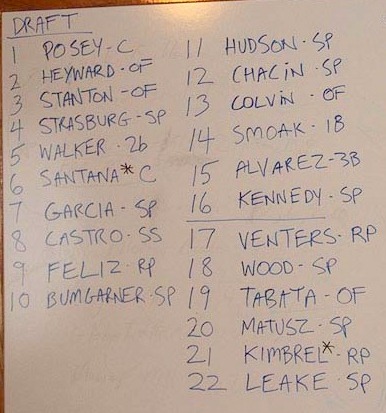 DRAFT
1 POSEY - C
2 HEYWARD - OF
3 STANTON - OF
4 STRASBURG - SP
5 WALKER - 2b
6 SANTANA* C
7 GARCIA - SP
8 CASTRO - SS
9 FELIZ - RP
10 BUMGARNER - SP
11 HUDSON - SP
12 CHACIN - SP
13 COLVIN - OF
14 SMOAK - 1B
15 ALVAREZ - 3B
16 KENNEDY - SP
17 VENTERS - RP
18 WOOD - SP
19 TABATA - OF
20 MATUSZ - SP
21 KIMBREL* - RP
22 LEAKE - SP